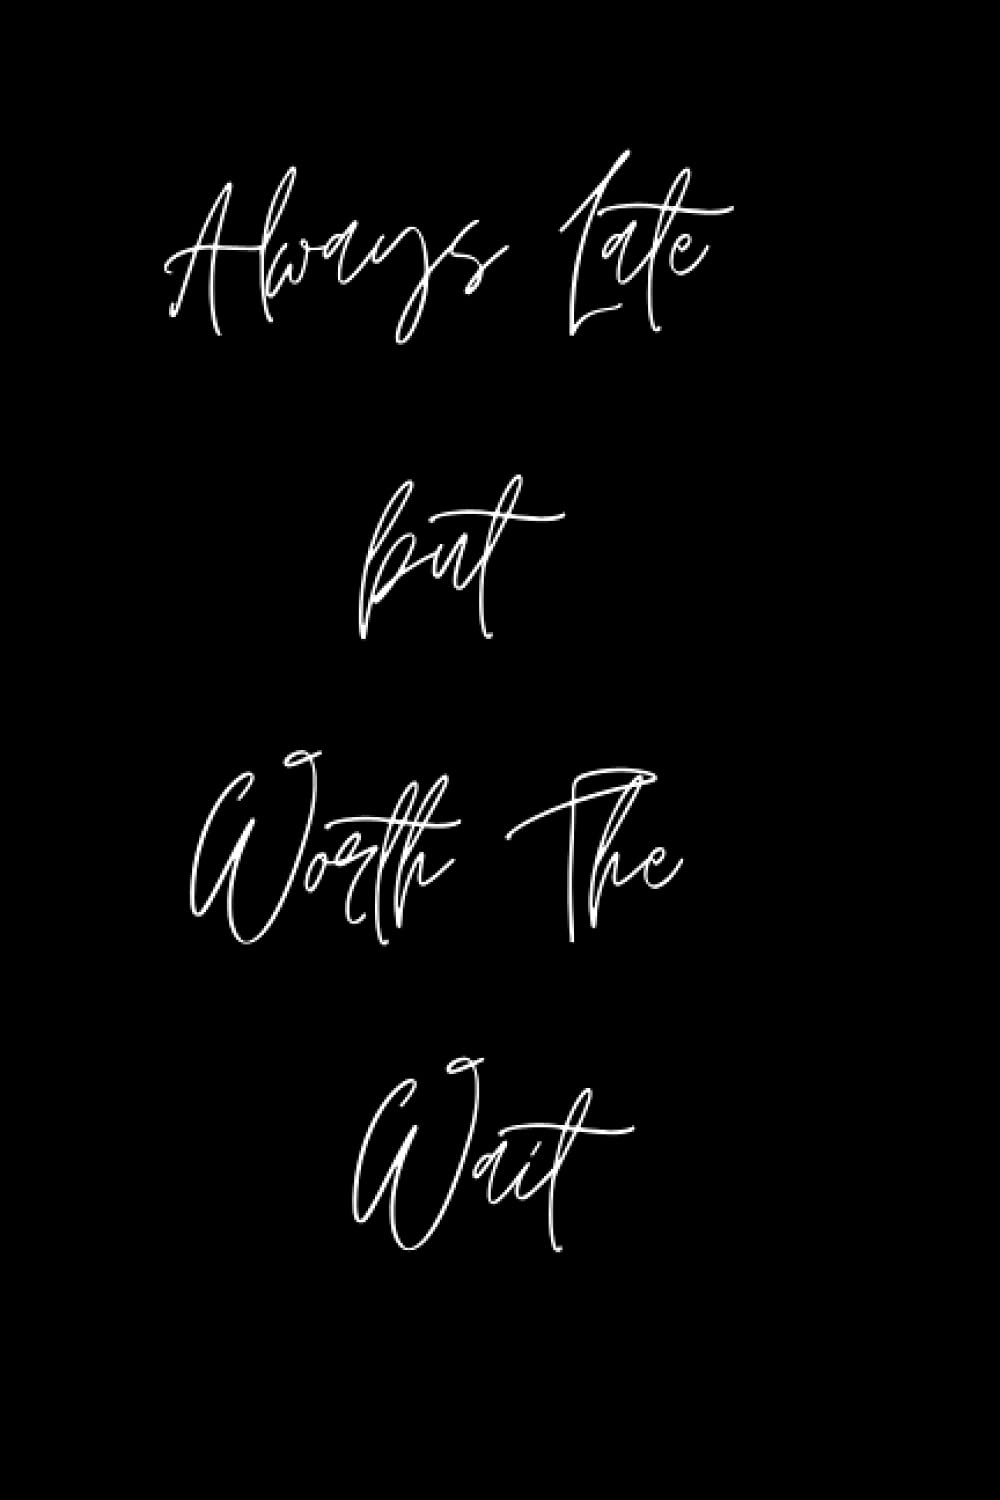 Always Late
but
Worth The
Wait